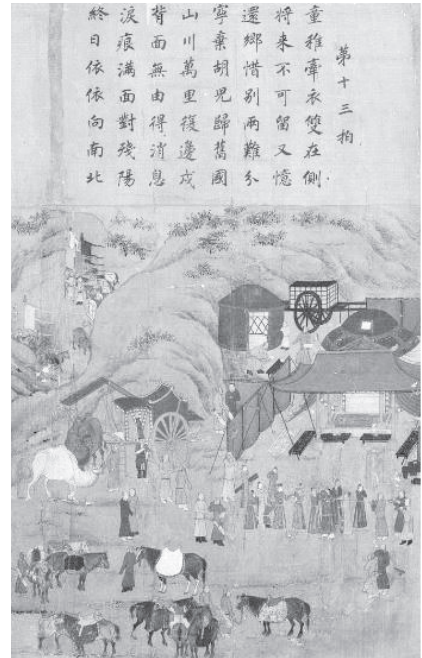 第十三拍
童稚牽衣雙在側
将来不可留又憶
還鄉惜别兩難分
寧棄胡兒歸舊國
山川萬里復邊戍
背面無由得消息
淚痕滿面對殘陽
終日依依向南北